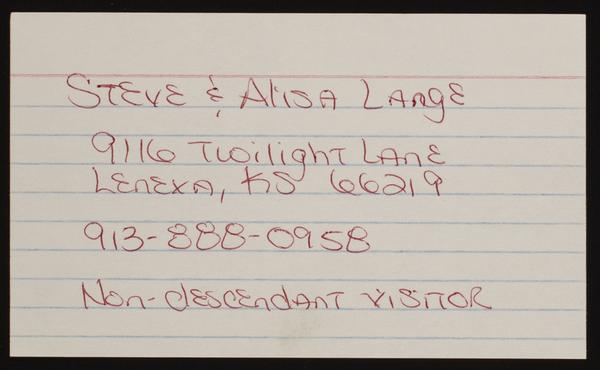 Steve & Alisa Lange
9116 Twilight Lane
Lenexa, KS 66219
913-888-0958
Non-descendant visitor